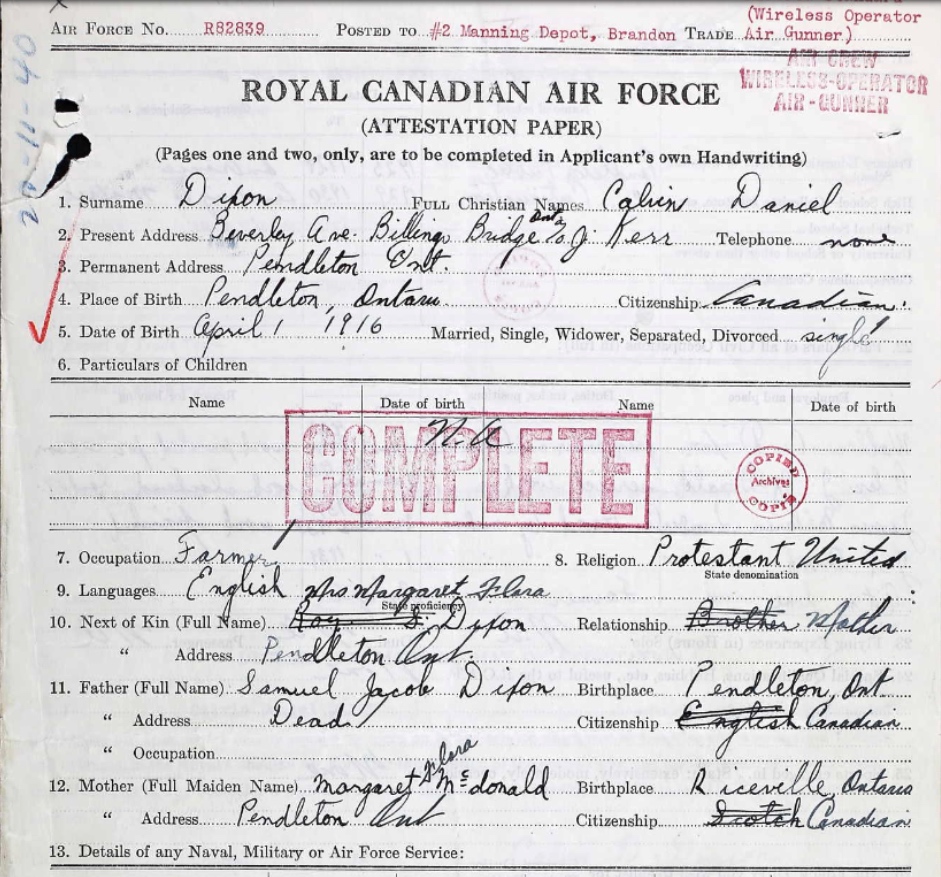 (Wireless Operator
AIR FORCE NO. R82839 POSTED TO #2 Manning Depot, Brandon TRADE Air Gunner)
AIR CREW
WIRELESS-OPERATOR
AIR-GUNNER
ROYAL CANADIAN AIR FORCE
(ATTESTATION PAPER)
(Pages one and two, only, are to be completed in Applicant's own Handwriting)
1. Surname Dixon FULL Christian Names Calvin Daniel
2. Present Address Beverley Ave. Billings Bridge Ont. J. Kerr Telephone none
3. Permanent Address Pendleton Ont.
4. Place of Birth Pendleton, Ontario Citizenship Canadian.
5. Date of Birth April 1 1916 Married, Single, Widower, Separated, Divorced single
6. Particulars of Children
Name Date of birth Name Date of birth
N.A
COMPLETE
COPIED
Archives
COPIÉ
7. Occupation Farmer 8. Religion Protestant United
State denomination
9. Languages English Mrs Margaret Flora
State proficiency
10. Next of Kin (Full Name) Ray S. Dixon Relationship Brother Mother
" Address Pendleton Ont.
11. Father (Full Name) Samuel Jacob Dixon Birthplace Pendleton, Ont
" Address Dead Citizenship English Canadian
" Occupation
Flora
12. Mother (Full Maiden Name) Margaret + McDonald Birthplace Riceville, Ontario
" Address Pendleton Ont Citizenship Scotch Canadian
13. Details of any Naval, Military or Air Force Service: